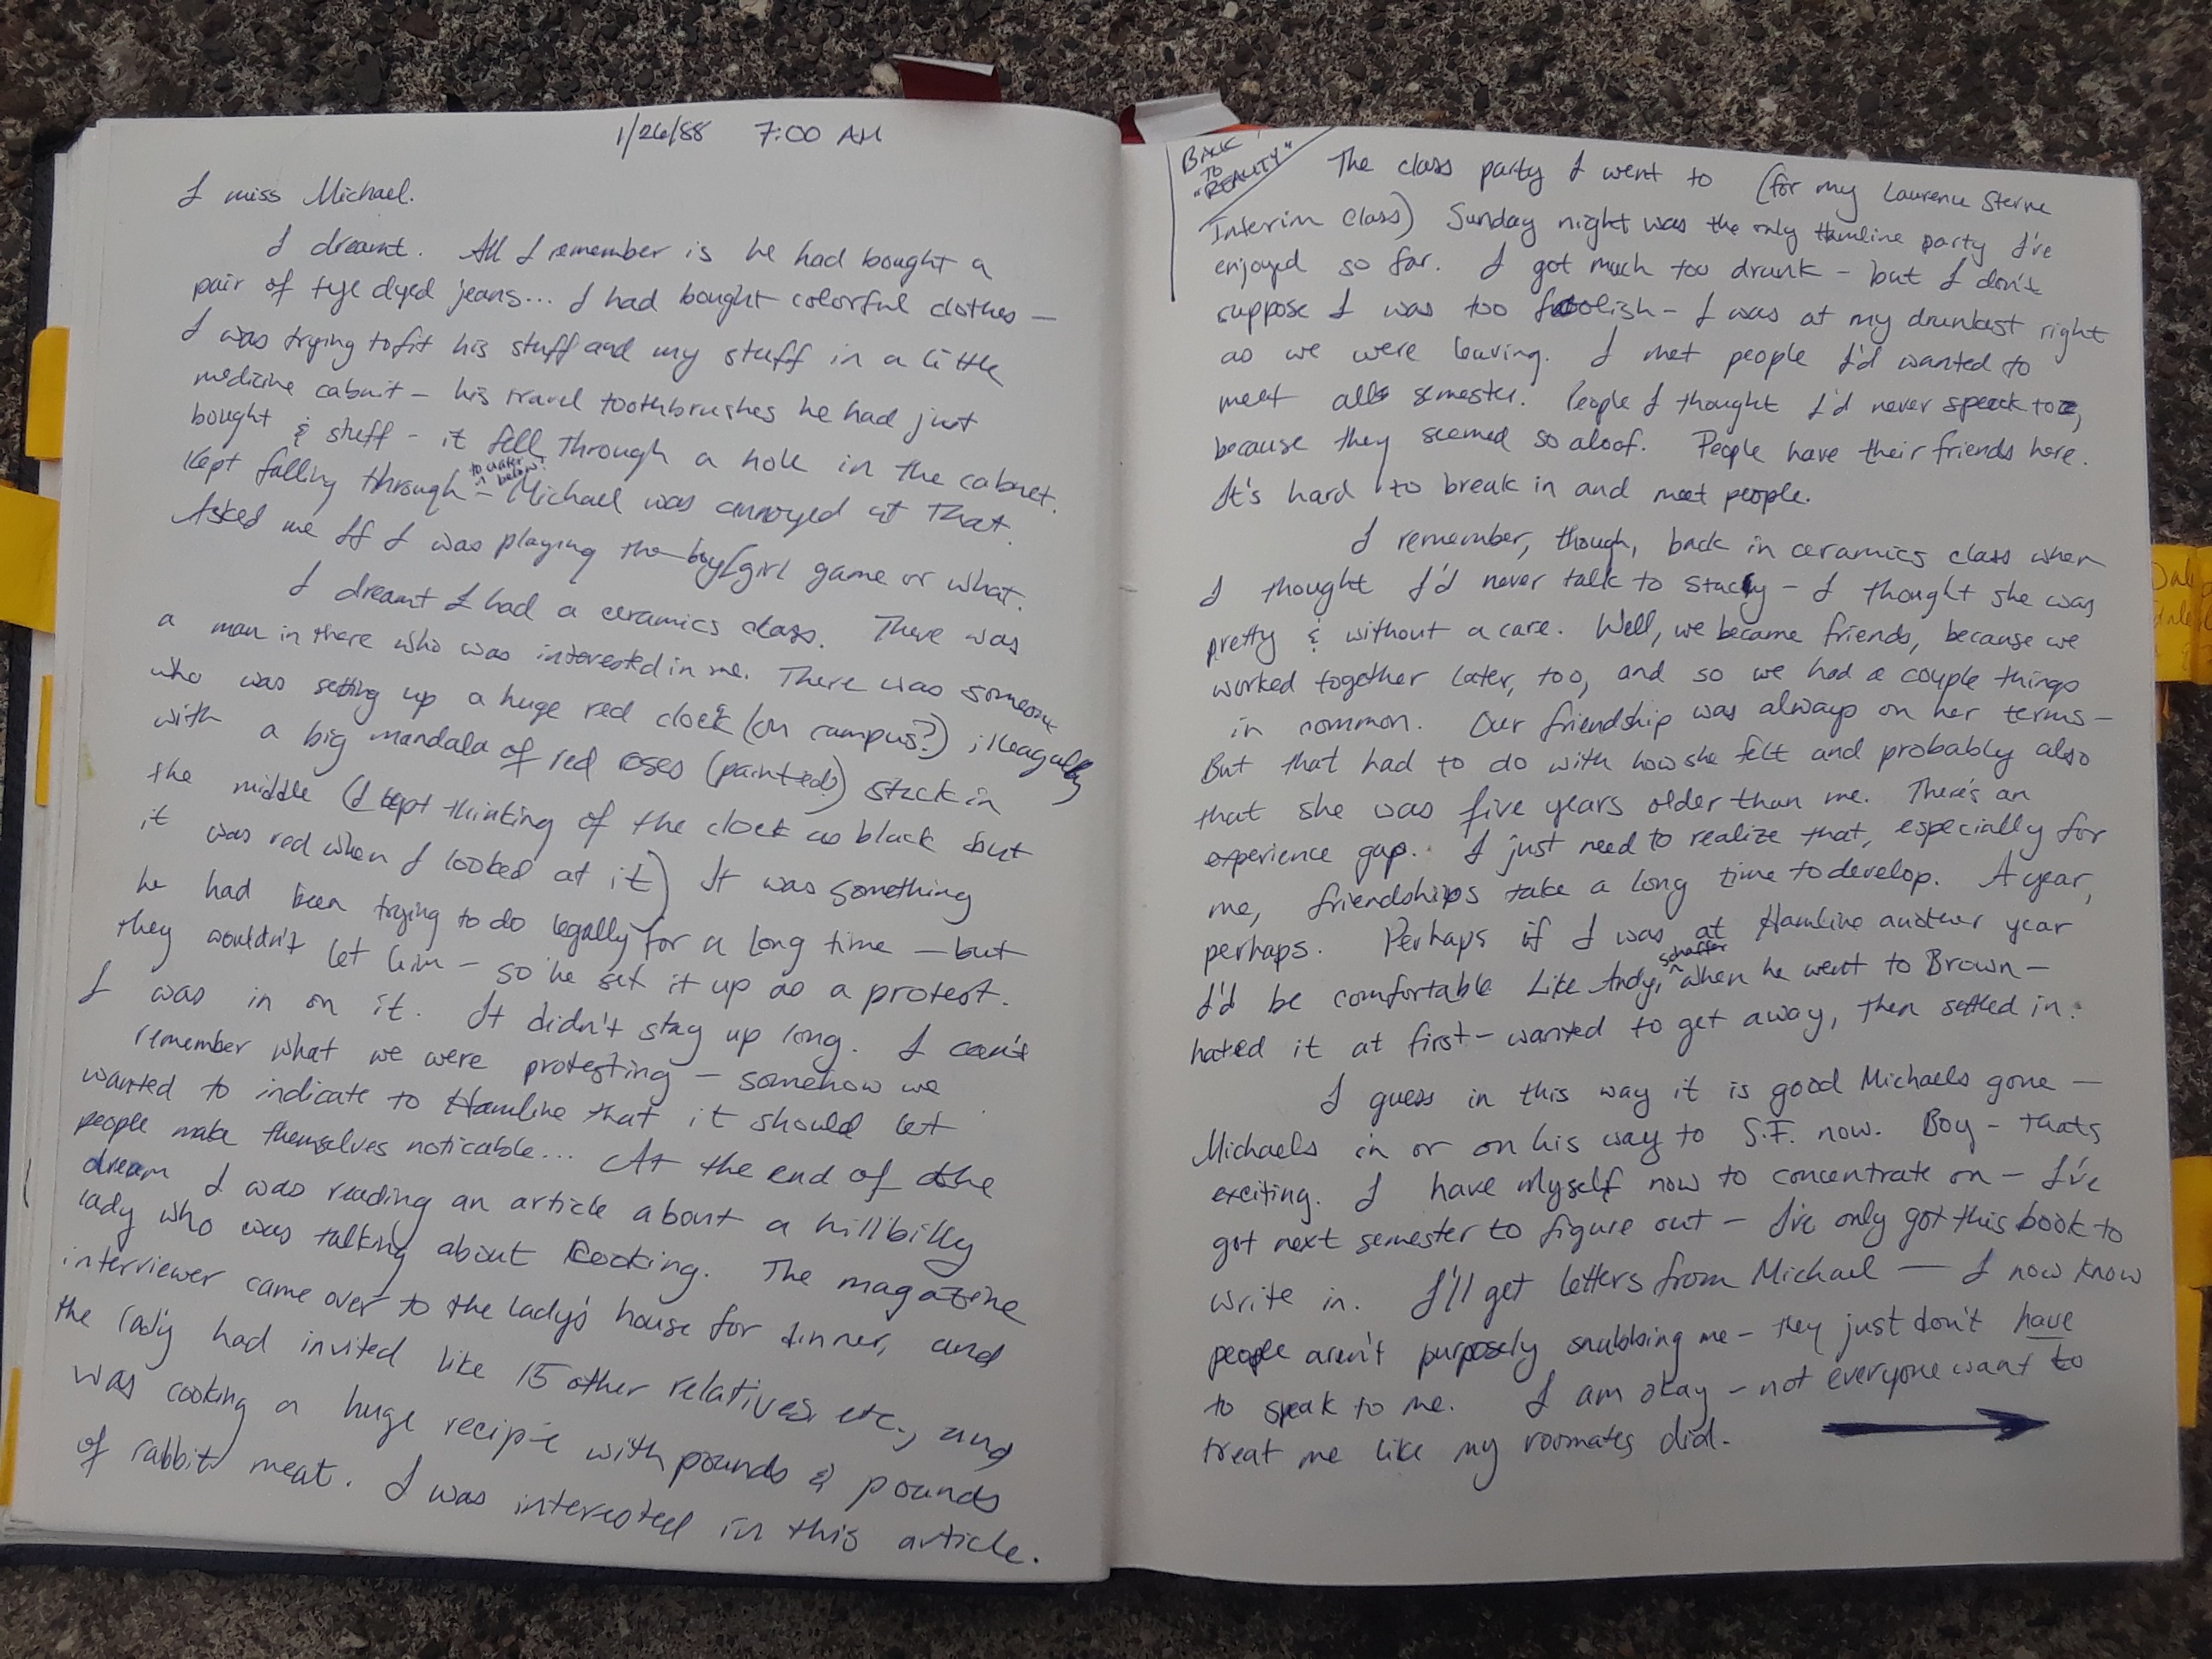 1/26/88 7:00 AM
I miss Michael.
I dreamt. All I remember is he had bought a
pair of tye dyed jeans... I had bought colorful clothes —
I was trying to fit his stuff and my stuff in a little
medicine cabnit - his travel toothbrushes he had just
bought & stuff - it fell through a hole in the cabnet.
Kept falling through to water below! - Michael was annoyed at that.
Asked me If I was playing the boy/girl game or what.
I dreamt I had a ceramics class. There was
a man in there who was interested in me. There was someone
who was setting up a huge red clock (on campus?) illeagally
with a big mandala of red roses (painted?) stuck in
the middle (I kept thinking of the clock as black but
it was red when I looked at it) It was something
he had been trying to do legally for a long time — but
they wouldn't let him - so he set it up as a protest.
I was in on it. It didn't stay up long. I can't
remember what we were protesting - somehow we
wanted to indicate to Hamline that it should let
people make themselves noticable... At the end of the
dream I was reading an article about a hillbilly
lady who was talking about Cooking. The magazine
interviewer came over to the lady's house for dinner, and
the lady had invited like 15 other relatives, etc., and
was cooking a huge recipie with pounds & pounds
of rabbit meat. I was interested in this article.
BACK
TO
"REALITY"
The class party I went to (for my Laurence Sterne
Interim Class) Sunday night was the only Hamline party I've
enjoyed so far. I got much too drunk - but I don't
suppose I was too foolish - I was at my drunkest right
as we were leaving. I met people I'd wanted to
meet all semester. People I thought I'd never speak to,
because they seemed so aloof. People have their friends here.
It's hard to break in and meet people.
I remember, though, back in ceramics class when
I thought I'd never talk to Stacy - I thought she was
pretty & without a care. Well, we became friends, because we
worked together later, too, and so we had a couple things
in common. Our friendship was always on her terms -
But that had to do with how she felt and probably also
that she was five years older than me. There's an
experience gap. I just need to realize that, especially for
me, friendships take a long time to develop. A year,
perhaps. Perhaps if I was at Hamline another year
I'd be comfortable Like Andy, schaffer when he went to Brown -
hated it at first - wanted to get away, then settled in.
I guess in this way it is good Michaels gone —
Michaels in or on his way to S.F. now. Boy - thats
exciting. I have myself now to concentrate on - I've
got next semester to figure out - I've only got this book to
write in. I'll get letters from Michael — I now know
people aren't purposely snubbing me - they just don't have
to speak to me. I am okay - not everyone want to
treat me like my roomates did.